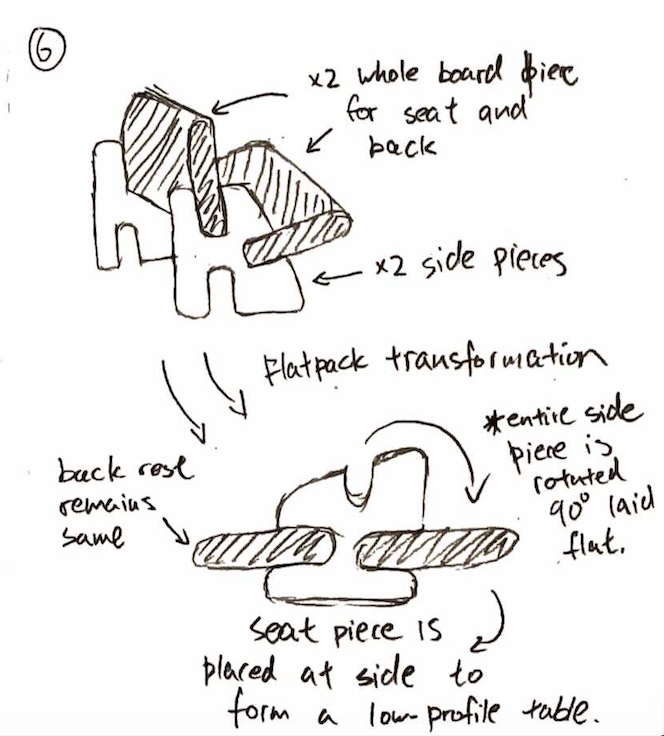 6
x2 whole board piece
for seat and
back
x2 side pieces
Flatpack transformation
*entire side
piece is
rotated
90° laid
flat.
back rest
remains
same
seat piece is
placed at side to
form a low-profile table.